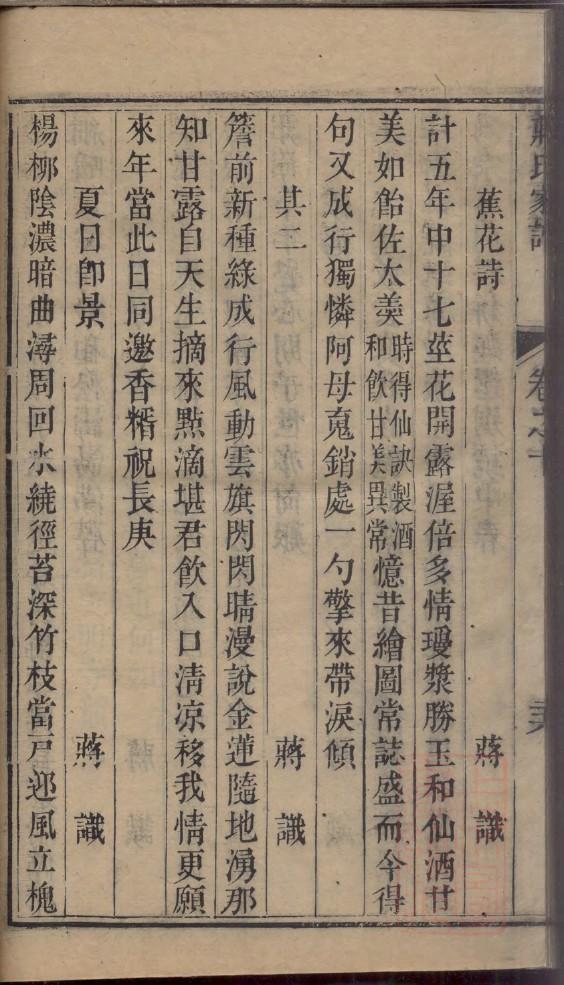 蕉花詩　蔣　識
計五年中十七莖花開露渥倍多情瓊漿勝玉和仙酒甘
美如飴佐太羮時得仙訣製酒和飲甘美異常憶昔繪圖常誌盛而今得
句又成行獨憐阿母䰟銷處一勺擎來帶淚傾
其二　蔣　識
簷前新種綠成行風動雲旗閃閃晴漫說金蓮隨地湧那
知甘露自天生摘來點滴堪君飲入口淸凉移我情更願
來年當此日同邀香糈祝長庚
夏日卽景　蔣　識
楊柳陰濃暗曲潯周回水繞徑苔深竹枝當戸迎風立槐